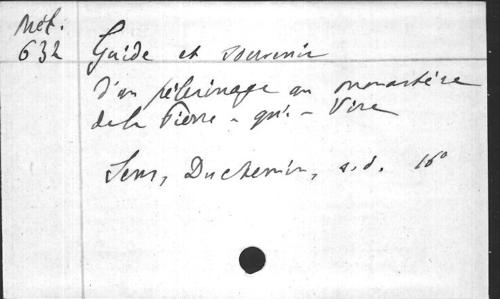 Mél.
632
Guide et souvenir
d'un pélerinage au monastère
de la Pierre-qui-Vire
Sens, Duchemin, s.d. 16°